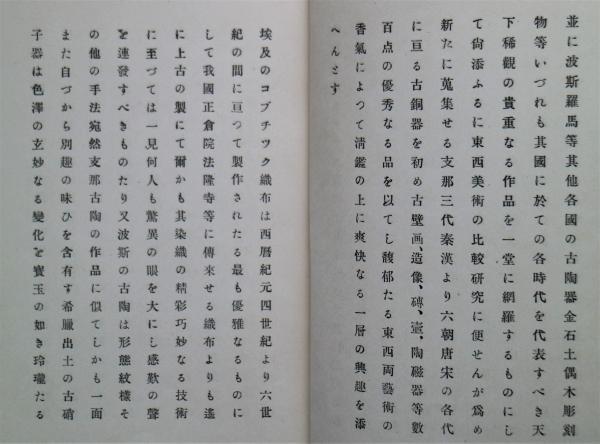 並に波斯羅馬等其他各國の古陶器金石土偶木彫刻
物等いづれも其國に於ての各時代を代表すべき天
下稀觀の貴重なる作品を一堂に網羅するものにし
て尙添ふるに東西美術の比較硏究に便せんが爲め
新たに蒐集せる支那三代秦漢より六朝唐宋の各代
に亘る古銅器を初め古壁画、造像、磚、壺、陶磁器等數
百点の優秀なる品を以てし馥郁たる東西両藝術の
香氣によつて淸鑑の上に爽快なる一層の興趣を添
へんとす
埃及のコブチツク織布は西曆紀元四世紀より六世
紀の間に亘つて製作されたる最も優雅なるものに
して我國正倉院法隆寺等に傳來せる織布よりも遙
に上古の製にて爾かも其染織の精彩巧妙なる技術
に至づては一見何人も驚異の眼を大にし感歎の聲
を連發すべきものたり又波斯の古陶は形態紋樣そ
の他の手法宛然支那古陶の作品に似てしかも一面
また自づから別趣の味ひを含有す希臘出土の古硝
子器は色澤の玄妙なる變化と寶玉の如き玲瓏たる